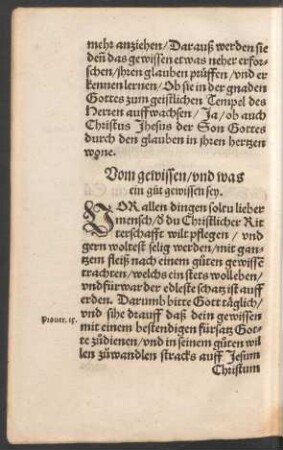 mehr anziehen/ Darauß werden sie
den̄ das gewissen etwas neher erfor-
schen/ jhren glauben prüffen/ vnd er
kennen lernen/ Ob sie in der gnaden
Gottes zum geistlichen Tempel des
Herren auffwachsen/ Ja/ ob auch
Christus Jhesus der Son Gottes
durch den glauben in jhren hertzen
wone.
Vom gewissen/ vnd was
ein gůt gewissen sey.
VOR allen dingen soltu lieber
mensch/ d̕ du Christlicher Rit
terschafft wilt pflegen/ vnd
gern woltest selig werden/ mit gan-
tzem fleiß nach einem gůten gewissē
trachten/ welchs ein stets wolleben/
vnd fürwar der edleste schatz ist auff
erden. Darumb bitte Gott täglich/
vnd sihe drauff daß dein gewissen
Prouer. 15.
mit einem bestendigen fürsatz Got-
te zůdienen/ vnd in seinem gůten wil
len zůwandlen stracks auff Jesum
Christum